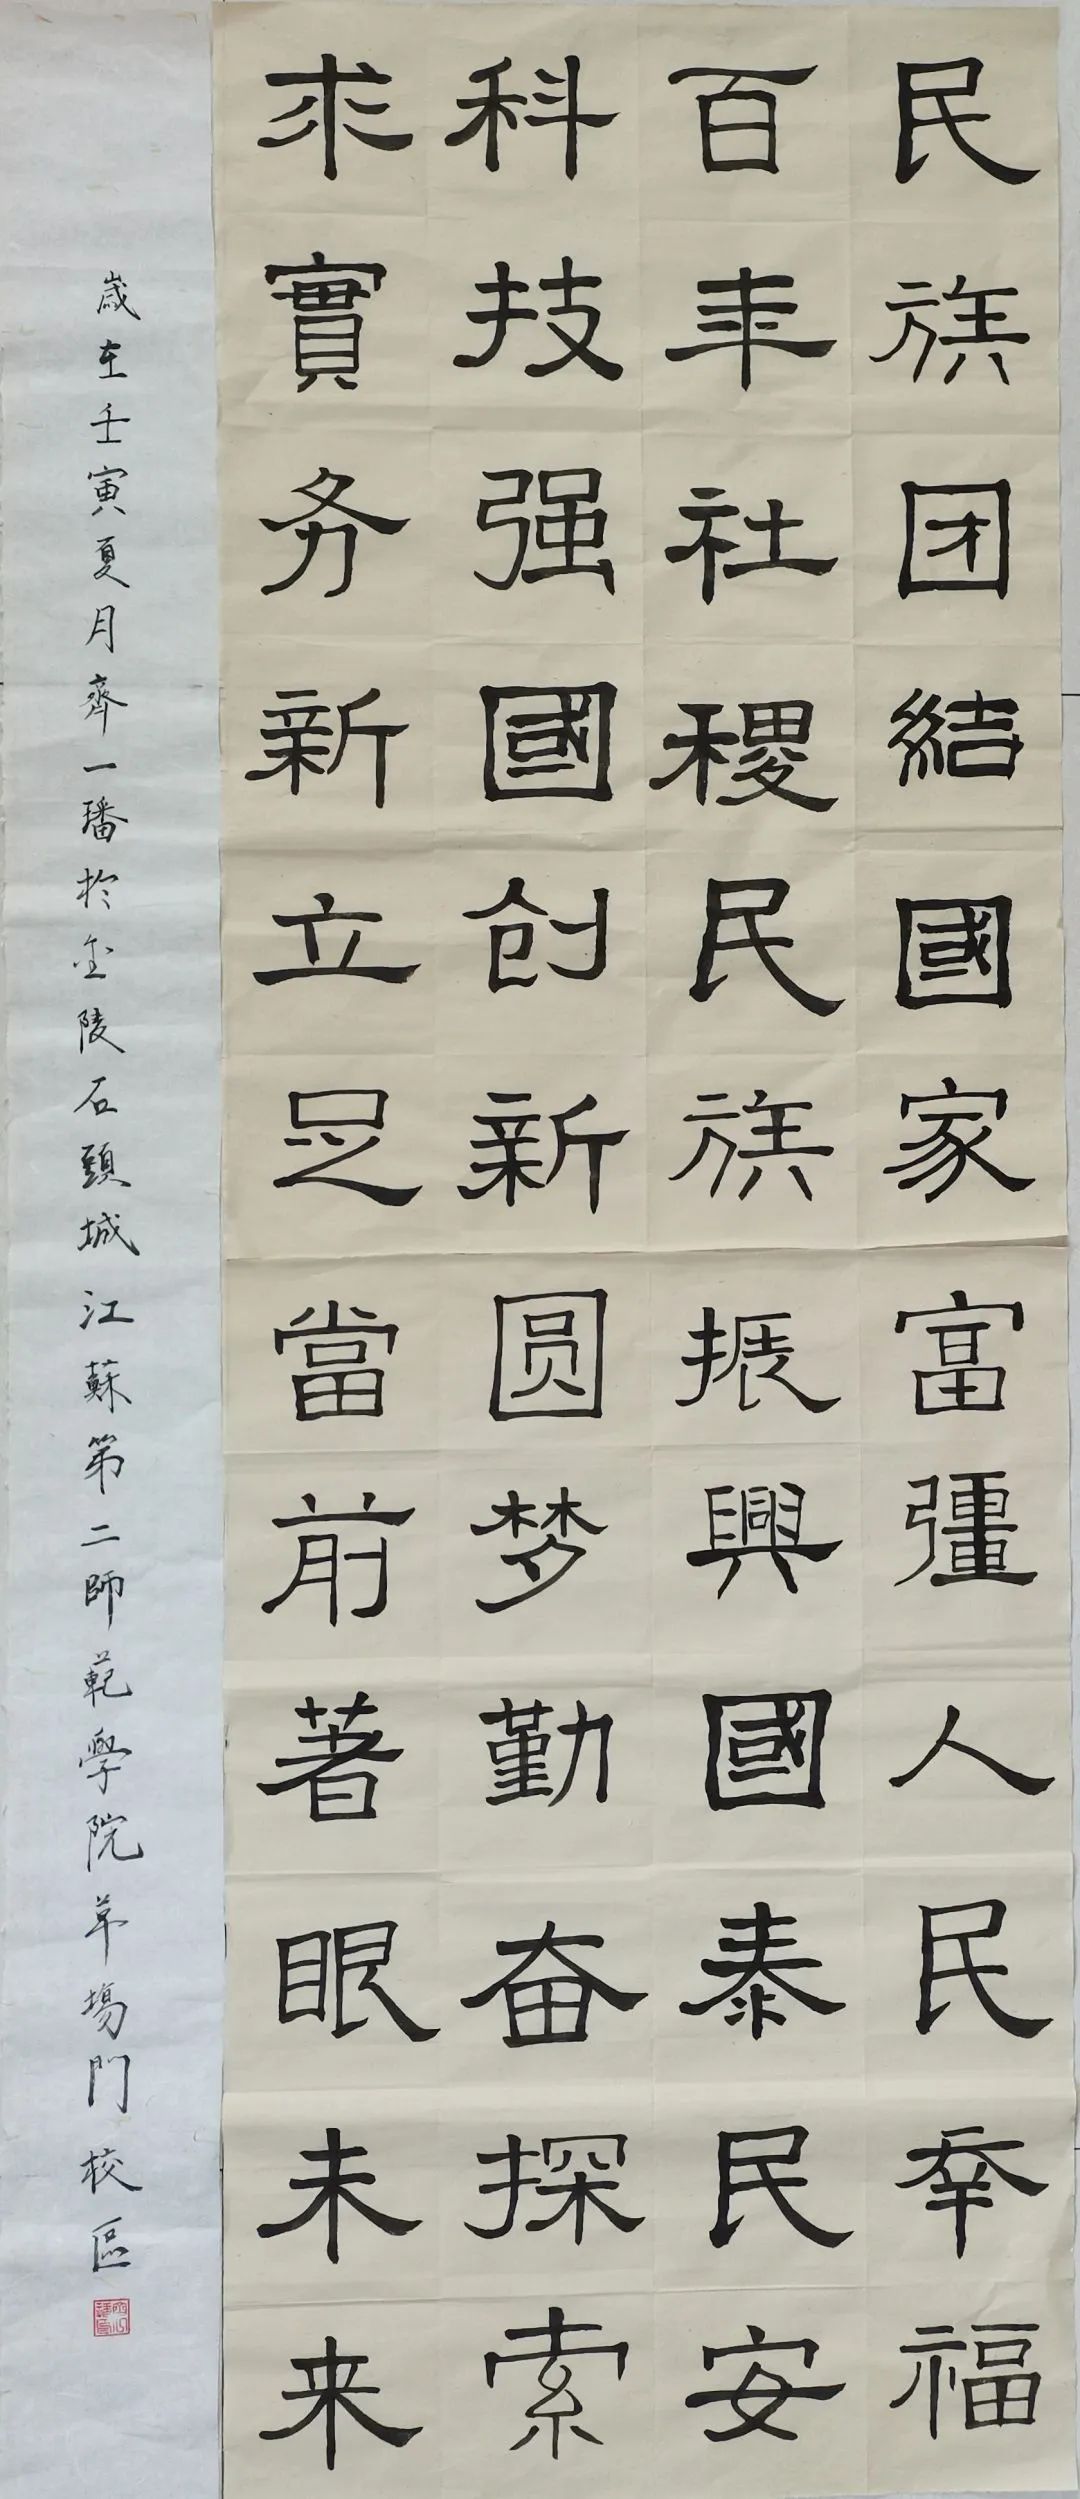 民族团結國家富彊人民幸福
百年社稷民族振興國泰民安
科技强國创新圆梦勤奋探索
求實务新立足當前著眼未来
歲在壬寅夏月齊一璠於金陵石頭城江蘇第二師範學院草場門校區